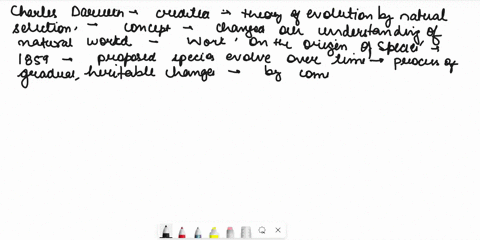 Charles Darwin → credited → theory of evolution by natural
selection. → concept → changed our understanding of
natural world → work 'On the Origin of Species' →
1859 → proposed species evolve over time → process of
gradual, heritable changes → by com